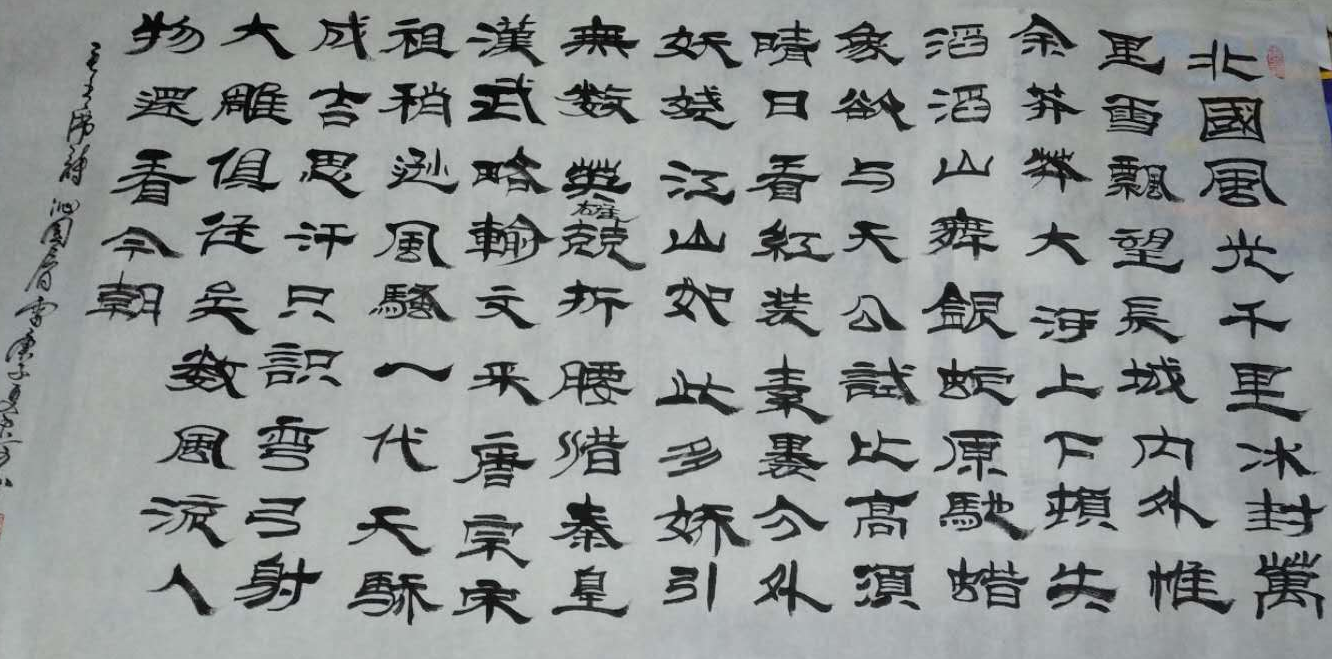 北國風光千里冰封萬
里雪飄望長城内外惟
余莽莽大河上下頓失
滔滔山舞銀蛇原馳蜡
象欲与天公試比高須
晴日看紅装素裹分外
妖嬈江山如此多娇引
無数英雄競折腰惜秦皇
漢武略輸文采唐宗宋
祖稍逊風騷一代天骄
成吉思汗只識弯弓射
大雕俱往矣数風流人
物還看今朝
毛主席詩 沁园春雪 庚子